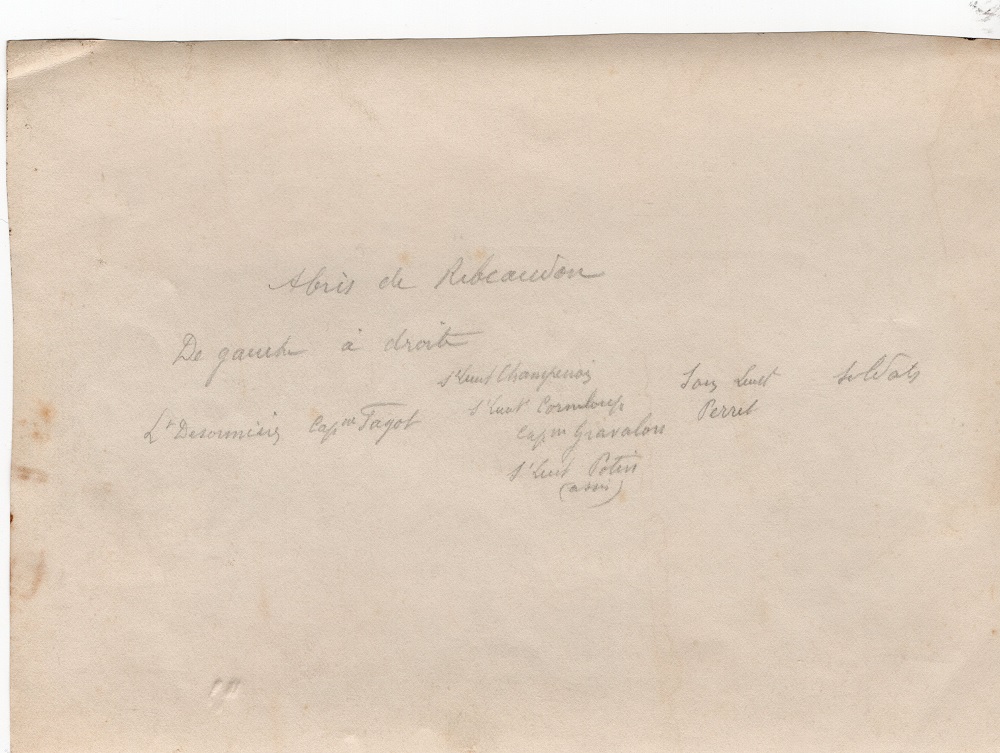 Abris de Ribeaudon
De gauche à droite
s/Lieut Champenois
Sous Lieut
soldats
s/Lieut Corneloup
Perret
Lt Desormière Capne Fagot
Capne Gravalon
s/Lieut Potin
(assis)